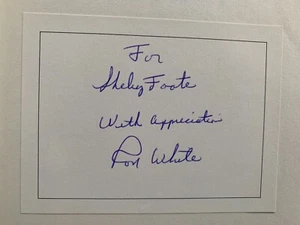 For
Shelby Foote
With appreciation
Ron White